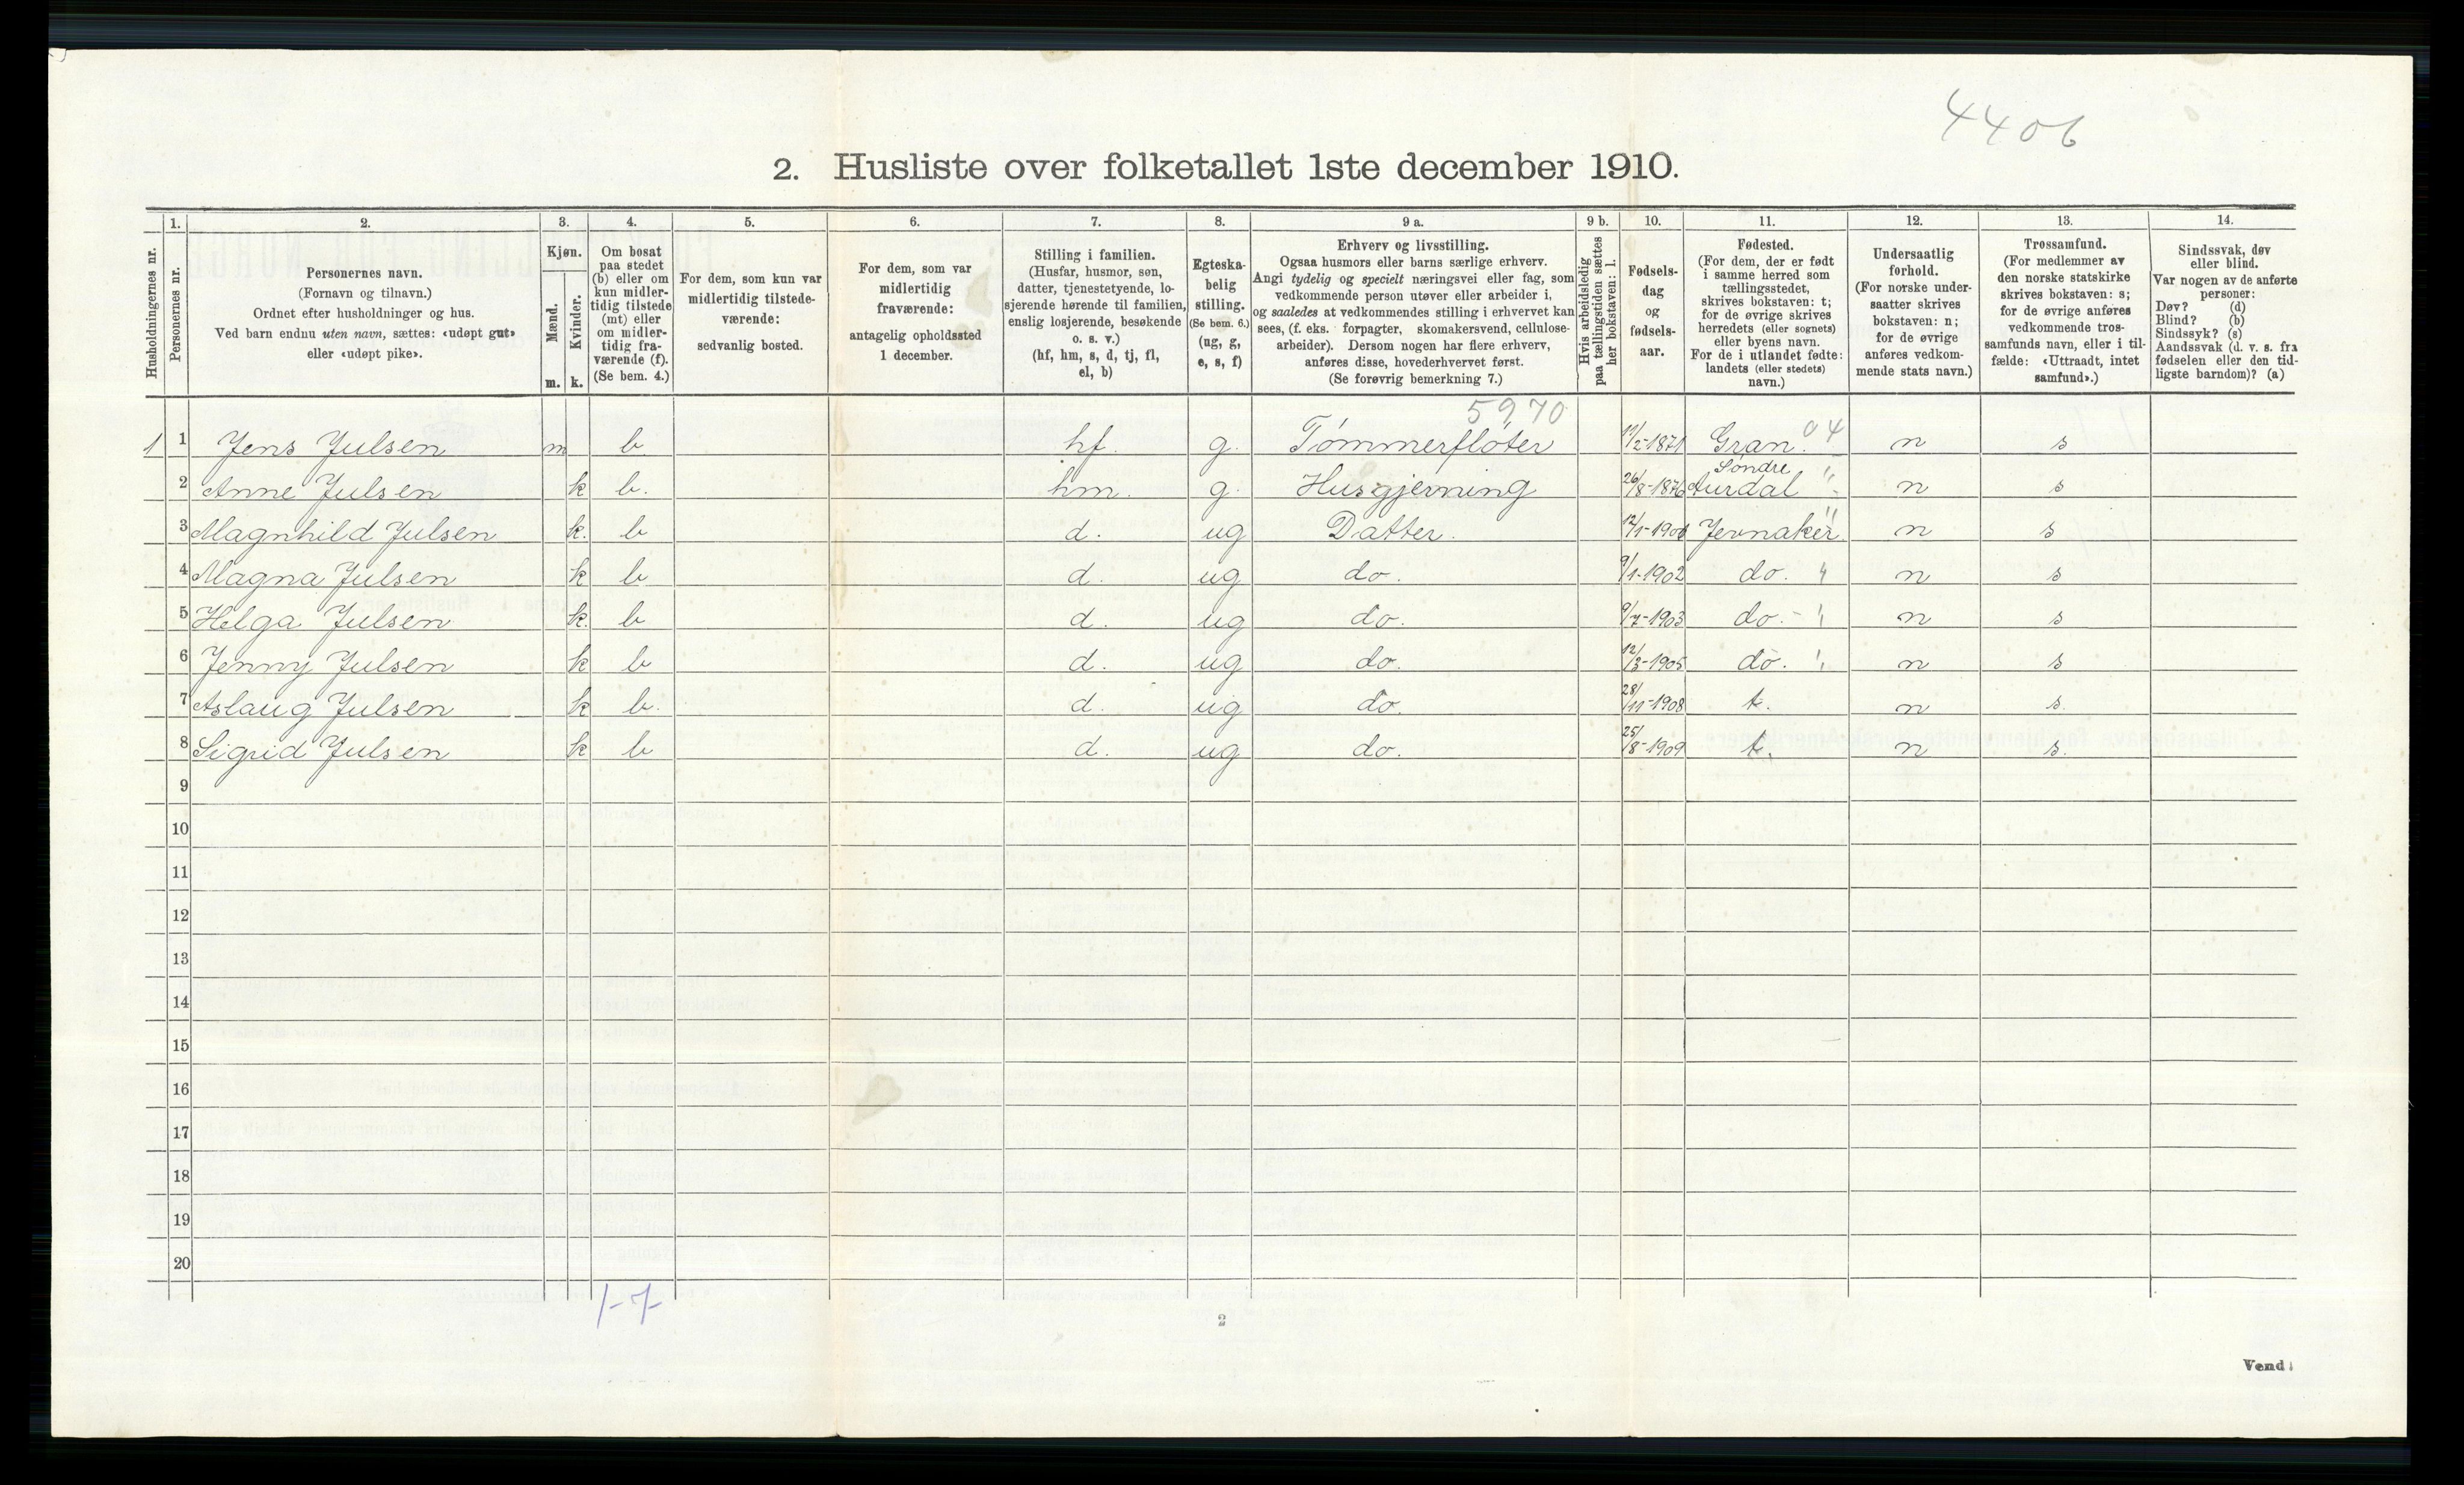 4406
2. Husliste over folketallet 1ste december 1910.
Husholdningernes nr.
1.
Personernes nr.
2.
Personernes navn.
(Fornavn og tilnavn.)
Ordnet efter husholdninger og hus.
Ved barn endnu uten navn, sættes: «udøpt gut»
eller «udøpt pike».
3.
Kjøn.
Mænd.
Kvinder.
m. k.
4.
Om bosat
paa stedet
(b) eller om
kun midler-
tidig tilstede
(mt) eller
om midler-
tidig fra-
værende (f).
(Se bem. 4.)
5.
For dem, som kun var
midlertidig tilstede-
værende:
sedvanlig bosted.
6.
For dem, som var
midlertidig
fraværende:
antagelig opholdssted
1 december.
7.
Stilling i familien.
(Husfar, husmor, søn,
datter, tjenestetyende, lo-
sjerende hørende til familien,
enslig losjerende, besøkende
o. s. v.)
(hf, hm, s, d, tj, fl,
el, b)
8.
Egteska-
belig
stilling.
(Se bem. 6.)
(ug, g,
e, s, f)
9 a.
Erhverv og livsstilling.
Ogsaa husmors eller barns særlige erhverv.
Angi tydelig og specielt næringsvei eller fag, som
vedkommende person utøver eller arbeider i,
og saaledes at vedkommendes stilling i erhvervet kan
sees, (f. eks. forpagter, skomakersvend, cellulose-
arbeider). Dersom nogen har flere erhverv,
anføres disse, hovederhvervet først.
(Se forøvrig bemerkning 7.)
9 b.
Hvis arbeidsledig
paa tællingstiden sættes
her bokstaven: l.
10.
Fødsels-
dag
og
fødsels-
aar.
11.
Fødested.
(For dem, der er født
i samme herred som
tællingsstedet,
skrives bokstaven: t;
for de øvrige skrives
herredets (eller sognets)
eller byens navn.
For de i utlandet fødte:
landets (eller stedets)
navn.)
12.
Undersaatlig
forhold.
(For norske under-
saatter skrives
bokstaven: n;
for de øvrige
anføres vedkom-
mende stats navn.)
13.
Trossamfund.
(For medlemmer av
den norske statskirke
skrives bokstaven: s;
for de øvrige anføres
vedkommende tros-
samfunds navn, eller i til-
fælde: «Uttraadt, intet
samfund».)
14.
Sindssvak, døv
eller blind.
Var nogen av de anførte
personer:
Døv? (d)
Blind? (b)
Sindssyk? (s)
Aandssvak (d. v. s. fra
fødselen eller den tid-
ligste barndom)? (a)
59,70
1 1 Jens Julsen m b hf. g. Tømmerfløter 11/2-1871 Gran. 04 n s
2 Anne Julsen k b. hm. g. Husgjerning 26/8-1876 Søndre Aurdal " n s
3 Magnhild Julsen k. b d. ug Datter. Jevnaker " n s
4 Magna Julsen k b d. ug do. 9/1-1902 do. " n s
5 Helga Julsen k. b d. ug do. 9/7-1903 do. - " n s
6 Jenny Julsen k b d. ug do. 12/3-1905 do. " n s
7 Aslaug Julsen k b. d. ug do. 28/11-1908 t. n s.
8 Sigrid Julsen k b d. ug do. 25/8-1909 t. n s.
9
10
11
12
13
14
15
16
17
18
19
20
1-7
2
Vend!